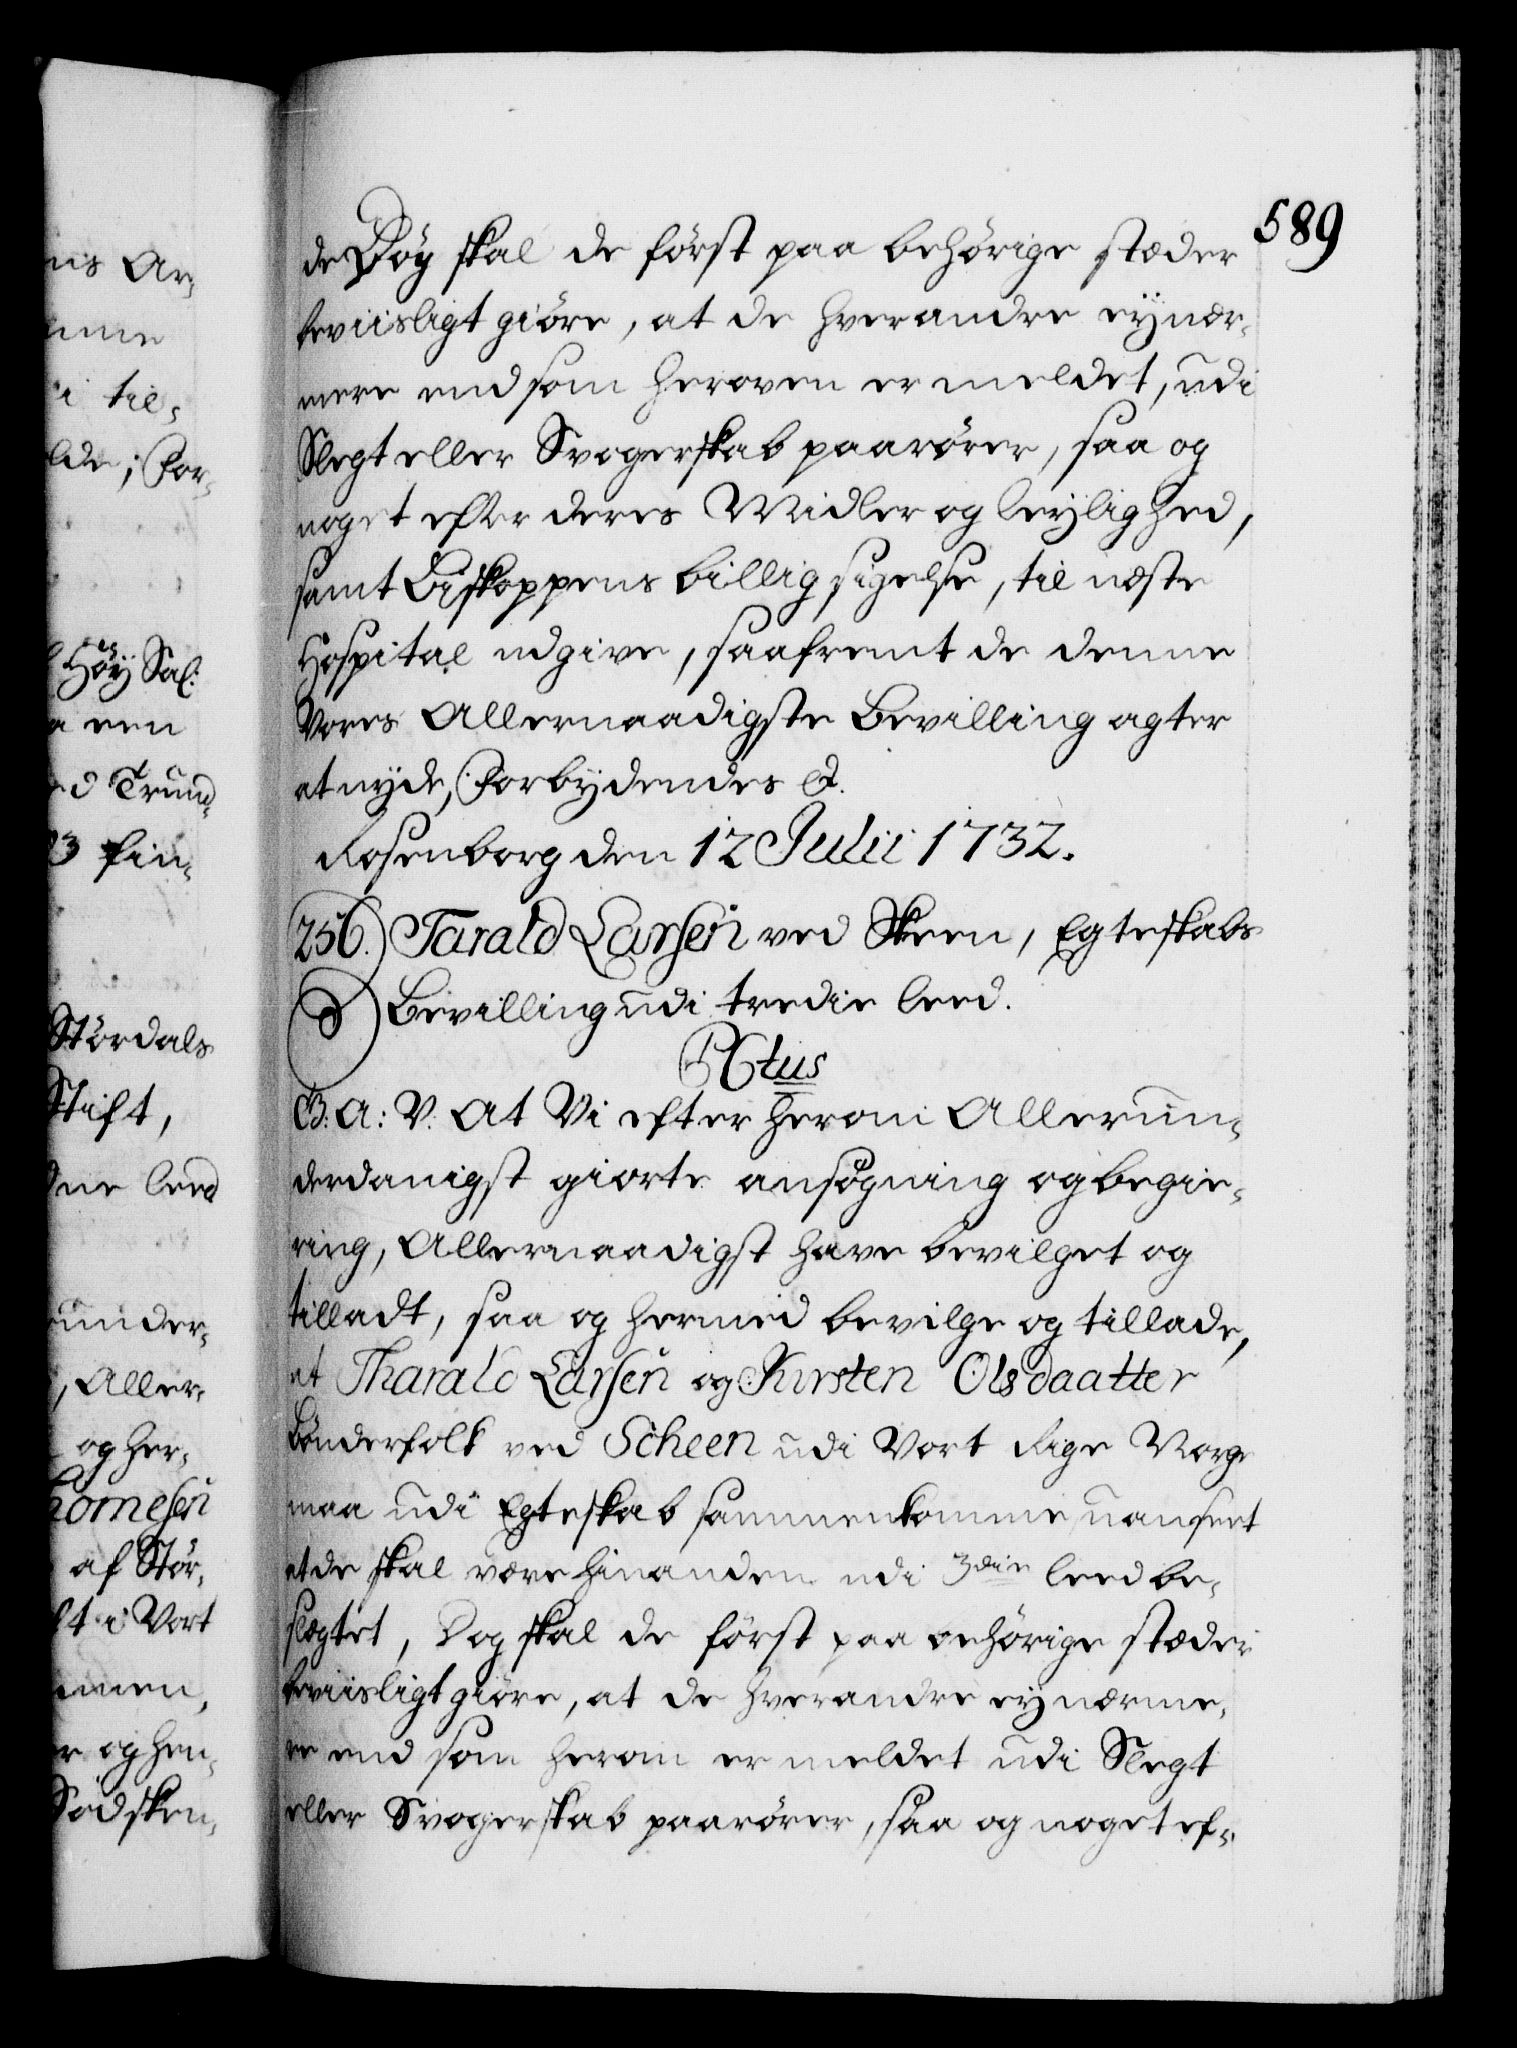 589
de Døy skal de først paa behørige stæder
beviisligt giøre, at de hverandre ey nær-
mere end som heroven er meldet, udi
Slegt eller Svogerskab paarører, saa og
noget efter deres Midler og leylighed,
samt Biskoppens billig sigelse, til næste
Hospital udgive, saafremt de denne
Vores Allernaadigste Bevilling agter
at nyde, Forbydendes &.
Rosenborg den 12 Julii 1732.
256.) Tarald Larsen ved Skeen, Egteskabs
Bevilling udi tredie leed.
G. A: V. At Vi efter herom Allerun-
derdanigst giorte ansøgning og begie-
ring, Allernaadigst have bevilget og
tilladt, saa og hermed bevilge og tillade,
at Tharald Larsen og Kirsten Olsdaatter
bønderfolk ved Scheen udi Vort Rige Norge
maa udi Egteskab sammenkomme, uanseet
at de skal være hinanden udi 3die leed be-
slægtet, Dog skal de først paa behørige stæder
beviisligt giøre, at de hverandre ey nærme-
re end som herom er meldet udi Slegt
eller Svogerskab paarører, saa og noget ef-